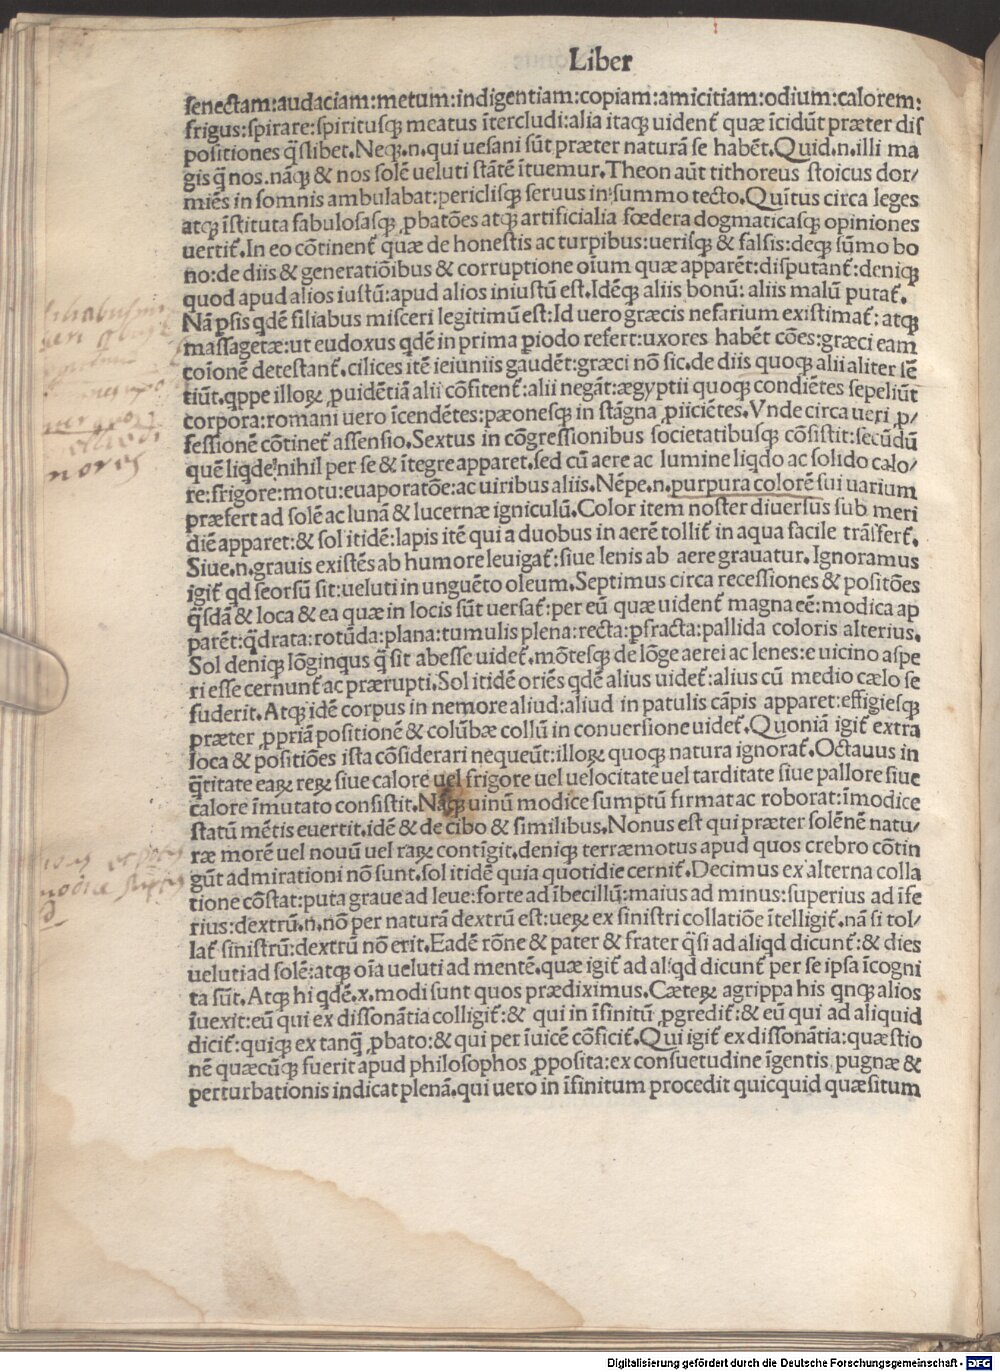 Liber
senectam:audaciam:metum:indigentiam:copiam:amicitiam:odium:calorem:
frigus:spirare:spiritusqꝫ meatus ĩtercludi:alia itaqꝫ uident᷑ quæ ĩcidũt præter dis
positiones q̃slibet.Neqꝫ.n.qui uesani sũt præter naturã se habẽt.Quid.n.illi ma
gis q̃ nos.nãqꝫ & nos solẽ ueluti stãtẽ ĩtuemur.Theon aũt tithoreus stoicus dor/
miẽs in somnis ambulabat:periclisqꝫ seruus in summo tecto.Quĩtus circa leges
atqꝫ ĩstituta fabulosasqꝫ ꝓbatões atqꝫ artificialia fœdera dogmaticasqꝫ opiniones
uertit᷑.In eo cõtinent᷑ quæ de honestis ac turpibus:uerisqꝫ & falsis:deqꝫ sũmo bo
no:de diis & generatiõibus & corruptione oĩum quæ apparẽt:disputant᷑:deniqꝫ
quod apud alios iustũ:apud alios iniustũ est.Idẽqꝫ aliis bonũ: aliis malũ putat᷑.
Nã ꝑsis qdẽ filiabus misceri legitimũ est:Id uero græcis nefarium existimat᷑: atqꝫ
massagetæ:ut eudoxus qdẽ in prima ꝑiodo refert:uxores habẽt cões:græci eam
coĩonẽ detestant᷑.cilices itẽ ieiuniis gaudẽt:græci nõ sic.de diis quoqꝫ alii aliter sẽ
tiũt.qppe illoꝝ ꝓuidẽtiã alii cõfitent᷑:alii negãt:ægyptii quoqꝫ condiẽtes sepeliũt
corpora:romani uero ĩcendẽtes:pæonesqꝫ in stãgna ꝓiiciẽtes.Vnde circa ueri ꝓ/
fessionẽ cõtinet᷑ assensio.Sextus in cõgressionibus societatibusqꝫ cõsistit:secũdũ
quẽ liqde nihil per se & ĩtegre apparet.sed cũ aere ac lumine liqdo ac solido calo/
re:frigore:motu:euaporatõe:ac uiribus aliis.Nẽpe.n.purpura colorẽ sui uarium
præfert ad solẽ ac lunã & lucernæ igniculũ.Color item noster diuersus sub meri
diẽ apparet:& sol itidẽ:lapis itẽ qui a duobus in aerẽ tollit᷑ in aqua facile trãsfert᷑.
Siue.n.grauis existẽs ab humore leuigat᷑:siue lenis ab aere grauatur.Ignoramus
igit᷑ qd seorsũ sit:ueluti in unguẽto oleum.Septimus circa recessiones & positões
q̃sdã & loca & ea quæ in locis sũt uersat᷑:per eũ quæ uident᷑ magna eẽ:modica ap
parẽt:q̃drata:rotũda:plana:tumulis plena:recta:ꝑfracta:pallida coloris alterius.
Sol deniqꝫ lõginqus q̃ sit abesse uidet᷑.mõtesqꝫ de lõge aerei ac lenes:e uicino aspe
ri esse cernunt᷑ ac prærupti.Sol itidẽ oriẽs qdẽ alius uidet᷑:alius cũ medio cælo se
fuderit.Atqꝫ idẽ corpus in nemore aliud:aliud in patulis cãpis apparet:effigiesqꝫ
præter ꝓpriã positionẽ & colũbæ collũ in conuersione uidet᷑.Quoniã igit᷑ extra
loca & positiões ista cõsiderari nequeũt:illoꝝ quoqꝫ natura ignorat᷑.Octauus in
q̃titate eaꝝ reꝝ siue calore uel frigore uel uelocitate uel tarditate siue pallore siue
calore ĩmutato consistit.Nãqꝫ uinũ modice sumptũ firmat ac roborat:ĩmodice
statũ mẽtis euertit.idẽ & de cibo & similibus.Nonus est qui præter solẽnẽ natu/
ræ morẽ uel nouũ uel raꝝ contĩgit.deniqꝫ terræmotus apud quos crebro cõtin
gũt admirationi nõ sunt.sol itidẽ quia quotidie cernit᷑.Decimus ex alterna colla
tione cõstat:puta graue ad leue:forte ad ĩbecillũ:maius ad minus:superius ad ĩfe
rius:dextrũ.n.nõ per naturã dextrũ est:ueꝝ ex sinistri collatiõe ĩtelligit᷑.nã si tol/
lat᷑ sinistrũ:dextrũ nõ erit.Eadẽ rõne & pater & frater q̃si ad aliqd dicunt᷑:& dies
ueluti ad solẽ:atqꝫ oĩa ueluti ad mentẽ.quæ igit᷑ ad aliqd dicunt᷑ per se ipsa ĩcogni
ta sũt.Atqꝫ hi qdẽ.x.modi sunt quos prædiximus.Cæteꝝ agrippa his qnqꝫ alios
ĩuexit:eũ qui ex dissonãtia colligit᷑:& qui in ĩfinitũ ꝓgredit᷑:& eũ qui ad aliquid
dicit᷑:quiqꝫ ex tanq̃ ꝓbato:& qui per ĩuicẽ cõficit᷑.Qui igit᷑ ex dissonãtia:quæstio
nẽ quæcũqꝫ fuerit apud philosophos ꝓposita:ex consuetudine ĩgentis pugnæ &
perturbationis indicat plenã.qui uero in ĩfinitum procedit quicquid quæsitum
Digitalisierung gefördert durch die Deutsche Forschungsgemeinschaft - DFG